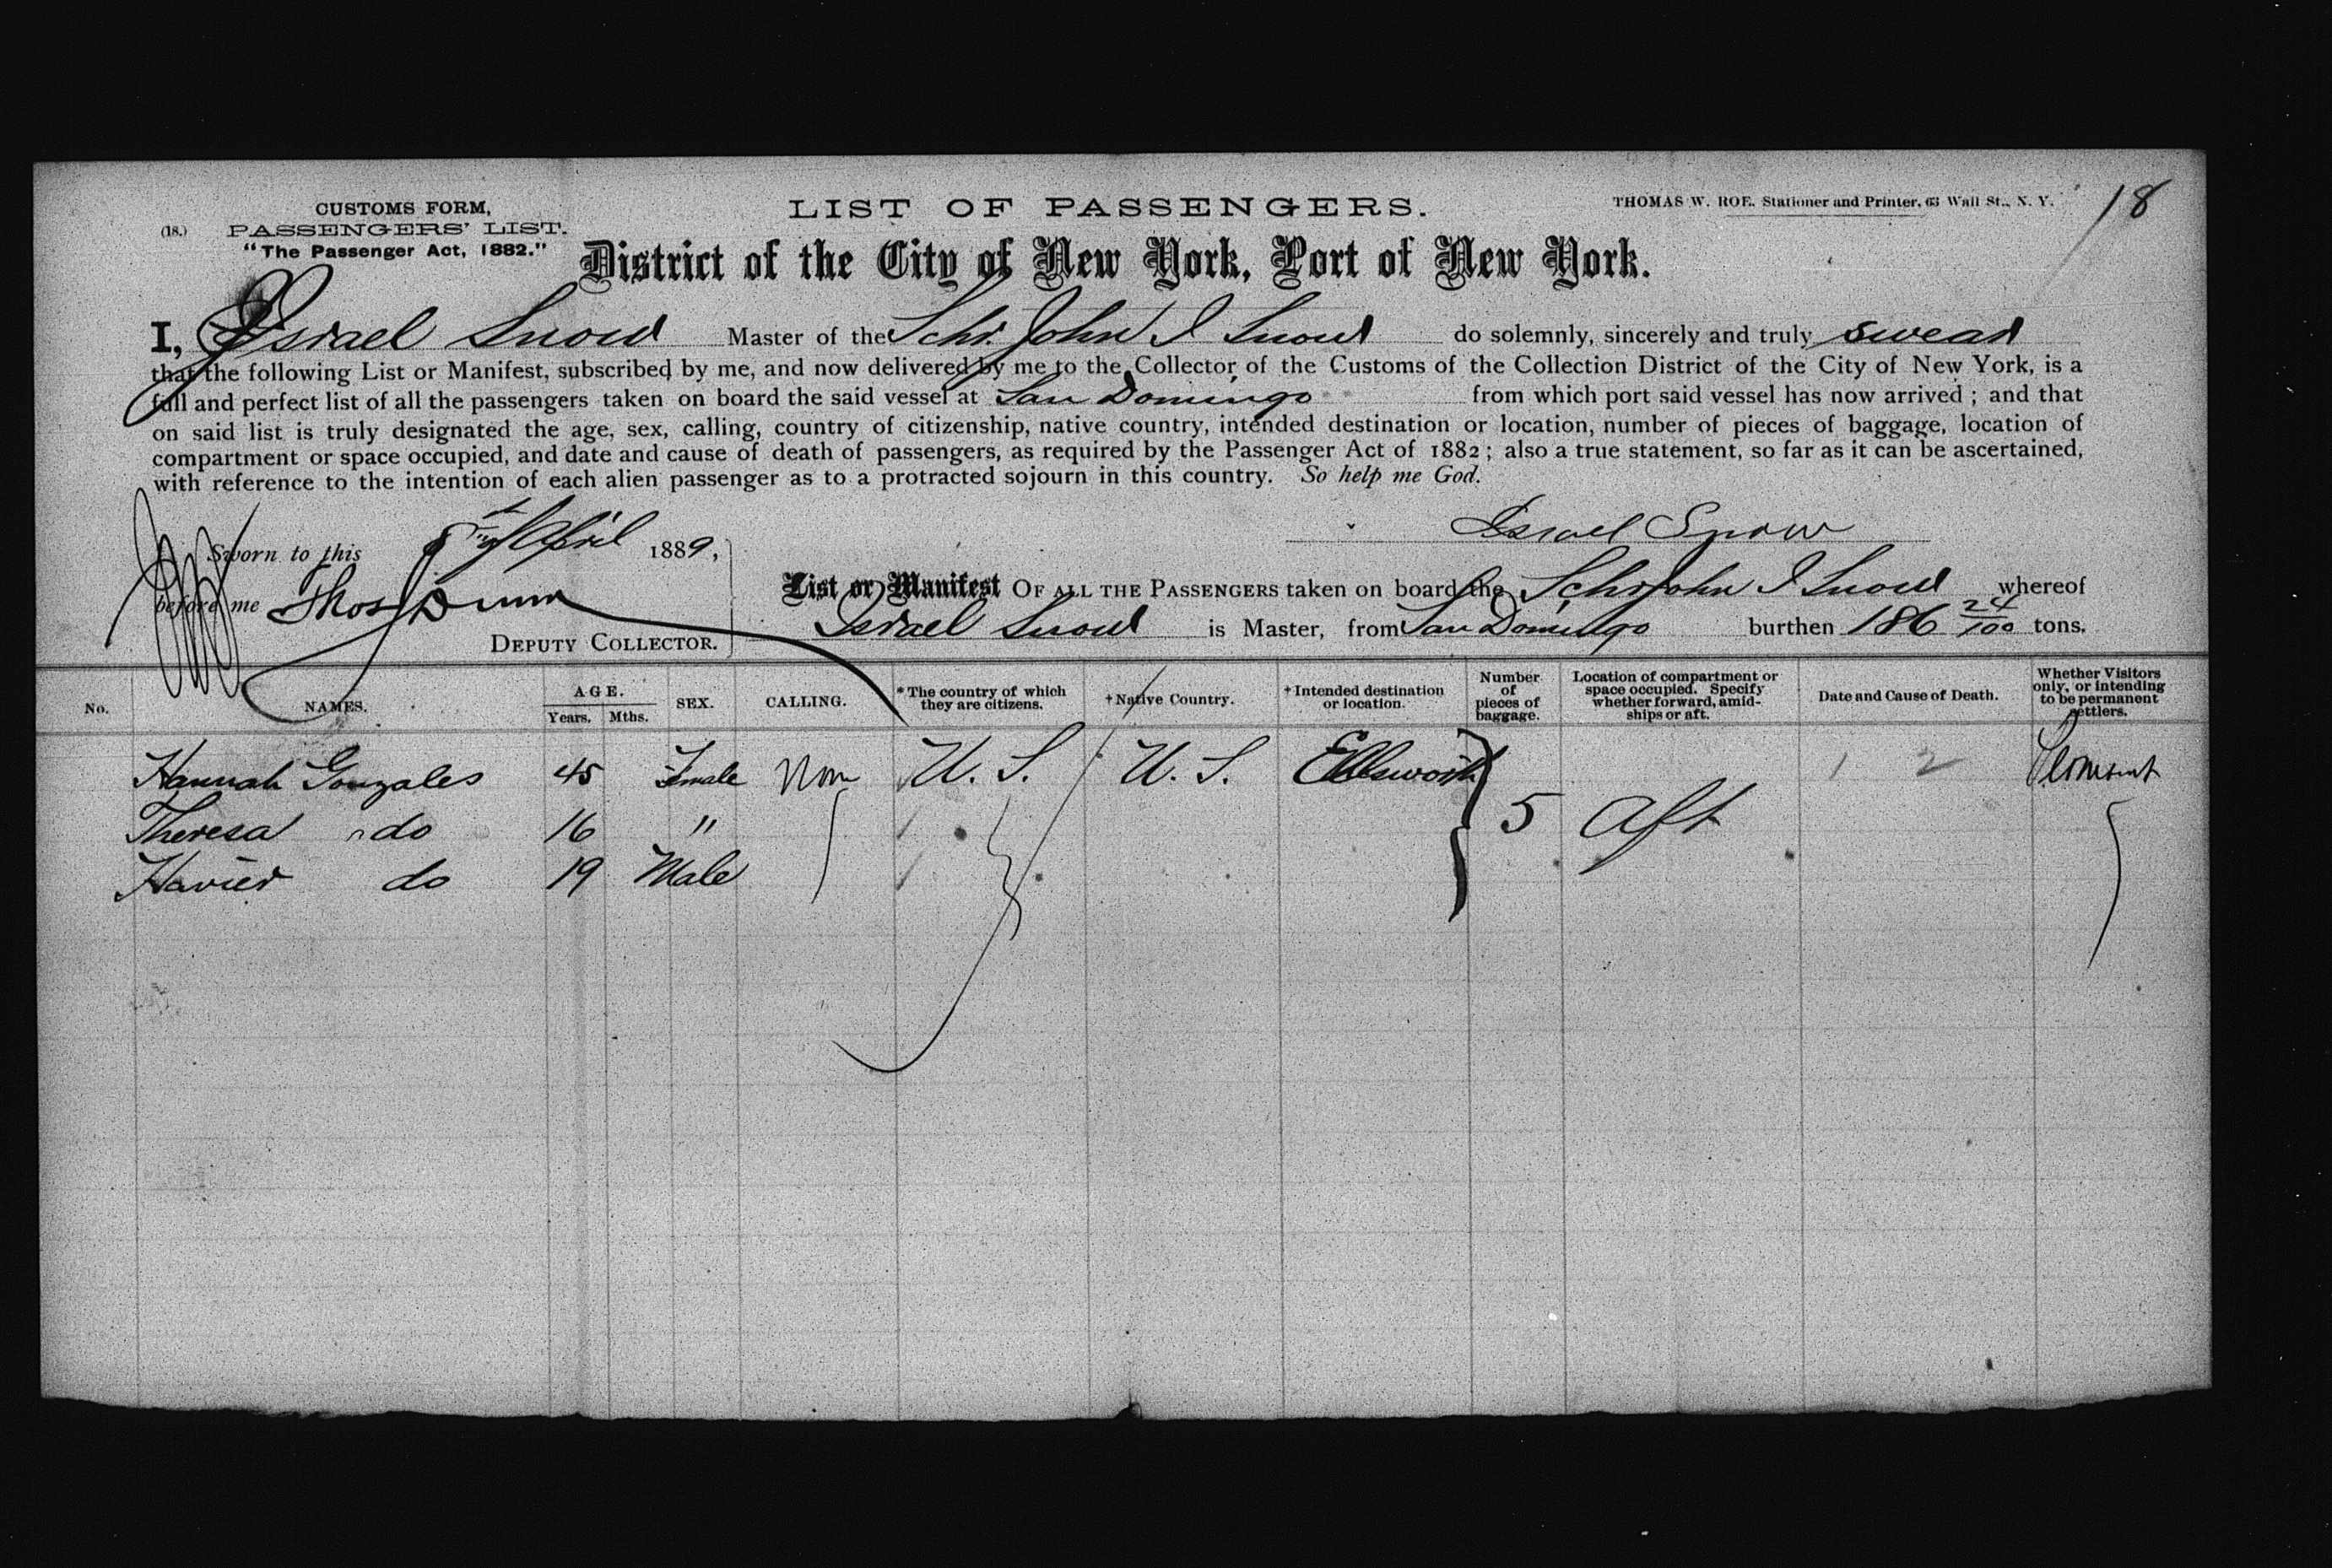 CUSTOMS FORM,
(18.) PASSENGERS' LIST.
"The Passenger Act, 1882."
LIST OF PASSENGERS.
THOMAS W. ROE, Stationer and Printer, 63 Wall St., N. Y.
18
District of the City of New York, Port of New York.
I, Israel Snow Master of the Schr. John I Snow do solemnly, sincerely and truly swear
that the following List or Manifest, subscribed by me, and now delivered by me to the Collector of the Customs of the Collection District of the City of New York, is a
full and perfect list of all the passengers taken on board the said vessel at San Domingo from which port said vessel has now arrived; and that
on said list is truly designated the age, sex, calling, country of citizenship, native country, intended destination or location, number of pieces of baggage, location of
compartment or space occupied, and date and cause of death of passengers, as required by the Passenger Act of 1882; also a true statement, so far as it can be ascertained,
with reference to the intention of each alien passenger as to a protracted sojourn in this country. So help me God.
Israel Snow
Sworn to this April 1889,
before me Thos Dunn
DEPUTY COLLECTOR.
List or Manifest OF ALL THE PASSENGERS taken on board the Schr John I Snow whereof
Israel Snow is Master, from San Domingo burthen 186 24/100 tons.
No. NAMES. AGE. Years. Mths. SEX. CALLING. *The country of which they are citizens. †Native Country. †Intended destination or location. Number of pieces of baggage. Location of compartment or space occupied. Specify whether forward, amidships or aft. Date and Cause of Death. Whether Visitors only, or intending to be permanent settlers.
Hannah Gonzales 45 Female Non U. S. U. S. Ellsworth 5 Aft 1 2
Theresa do 16 "
Havier do 19 Male